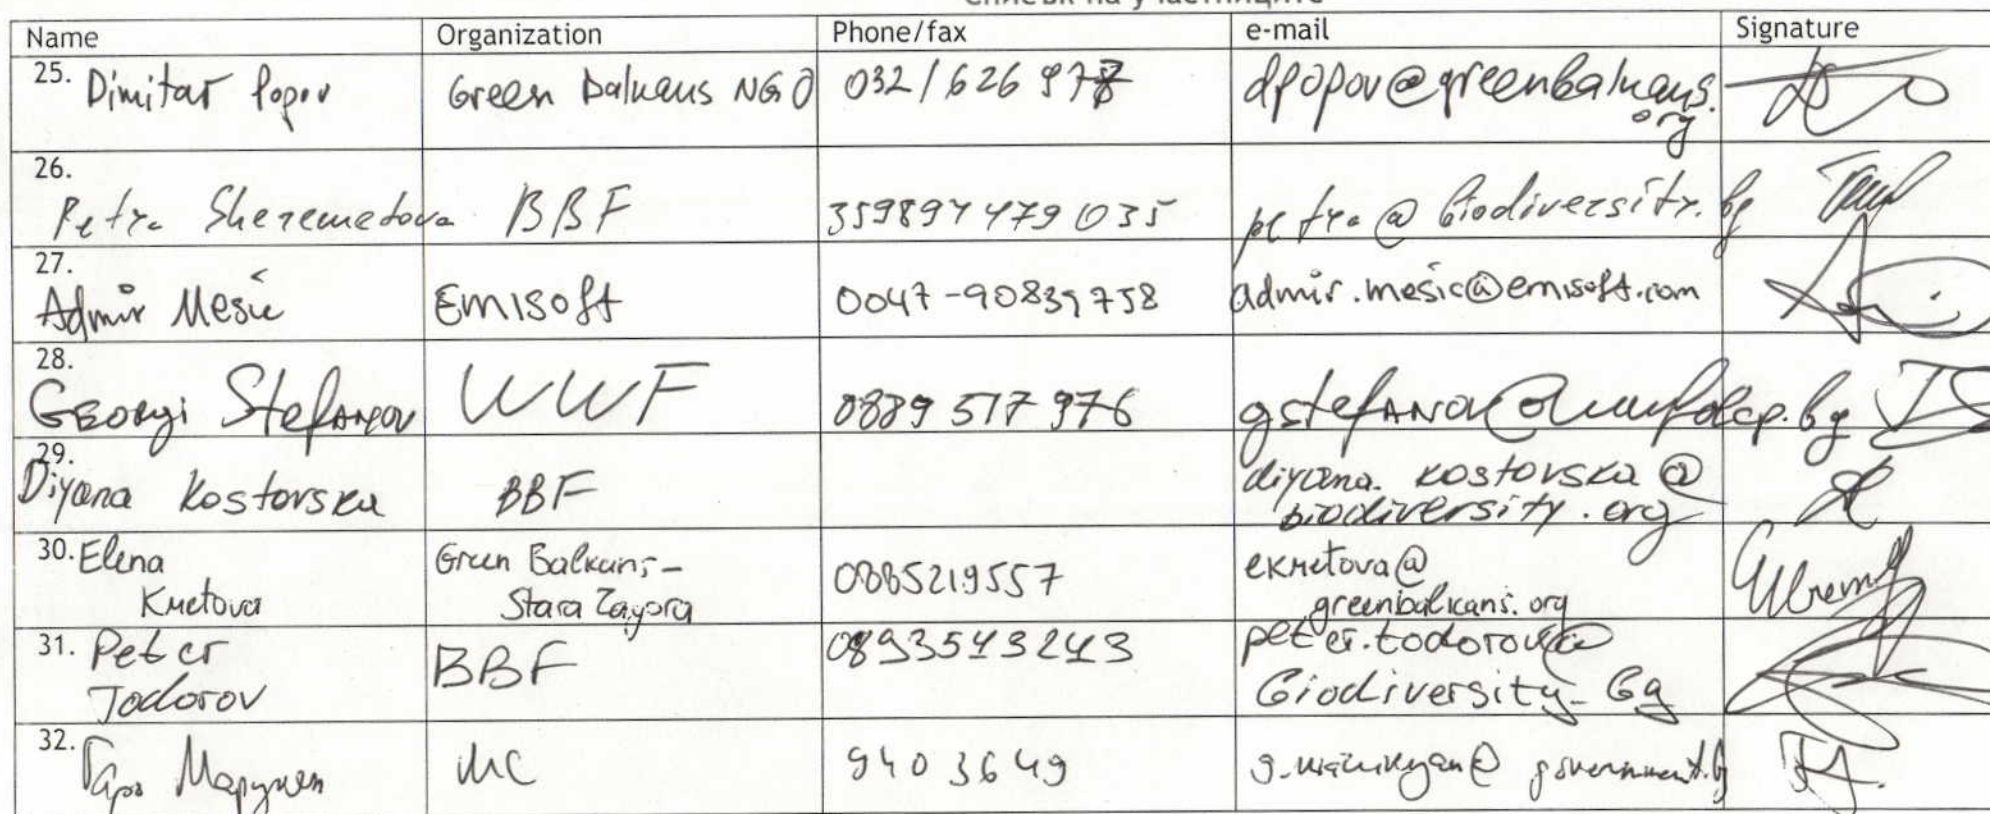 Списък на участниците
Name Organization Phone/fax e-mail Signature
25. Dimitar Popov Green Balkans NGO 032/626 978 dpopov@greenbalkans.
org
26.
Petya Sheremetova BBF 359897479035 petya@biodiversity.bg
27.
Admir Mešić Emisoft 0047-90839758 admir.mesic@emisoft.com
28.
GEORgi StefANOV WWF 0889 517 976 gstefANOV@wwfdcp.bg
29.
Diyana Kostovska BBF diyana.kostovska@
biodiversity.org
30. Elena Green Balkans- 0885219557 ekmetova@
Kmetova Stara Zagora greenbalkans.org
31. Peter BBF 0893543243 peter.todorov@
Todorov biodiversity.bg
32. МС 9403649 government.bg